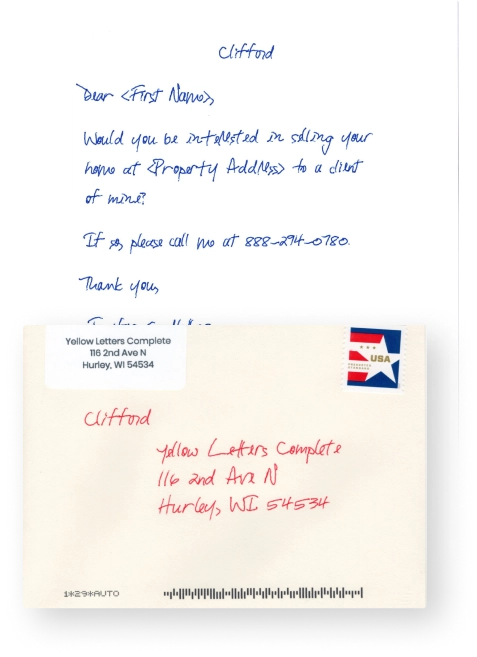 Clifford
Dear <First Name>,
Would you be interested in selling your
home at <Property Address> to a client
of mine?
If so, please call me at 888-294-0780.
Thank you,
Yellow Letters Complete
116 2nd Ave N
Hurley, WI 54534
USA
PRESORTED
STANDARD
Clifford
Yellow Letters Complete
116 2nd Ave N
Hurley, WI 54534
1*29*AUTO